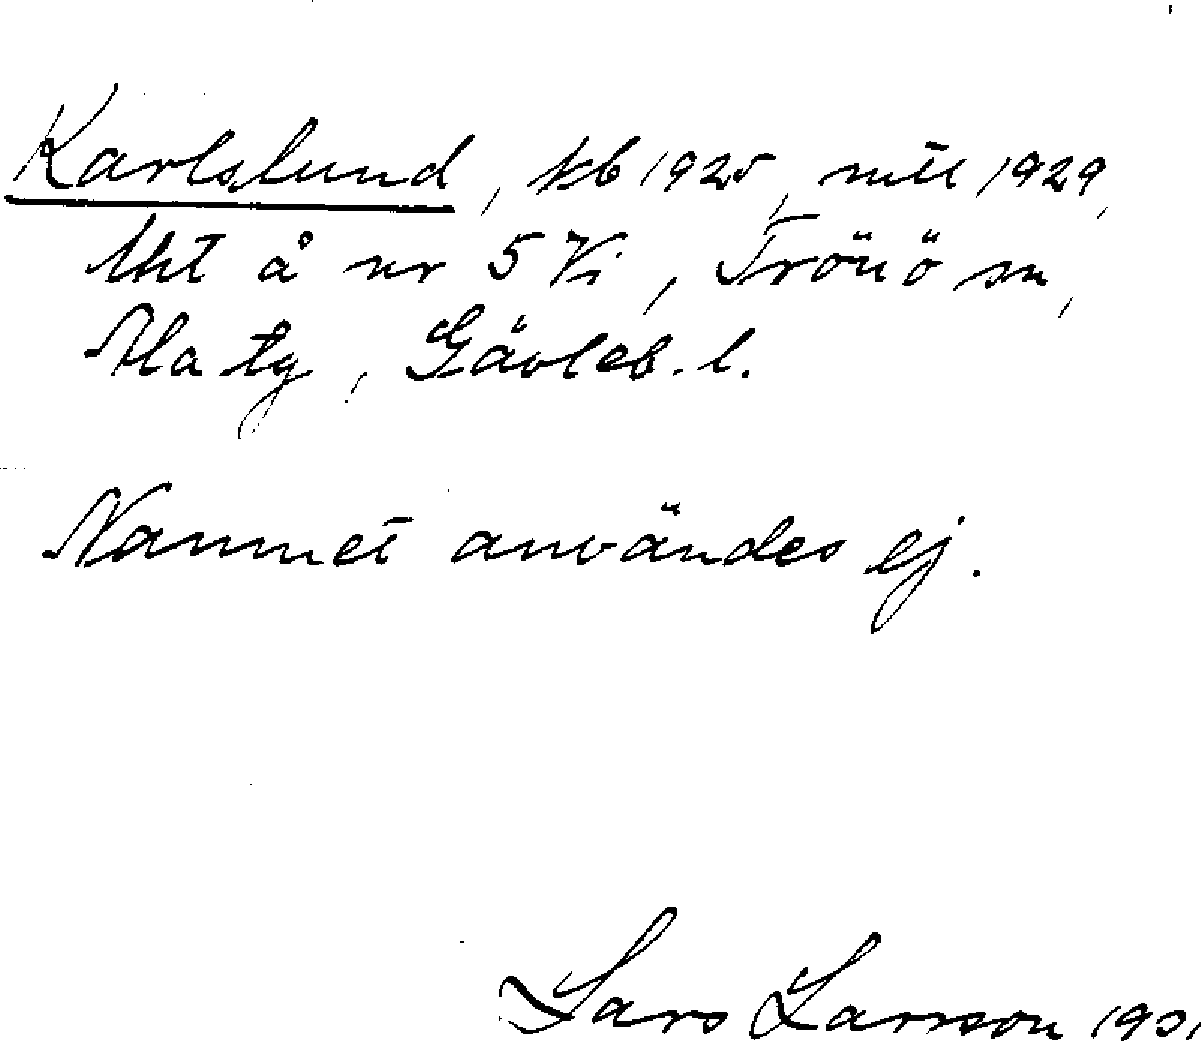 Karlslund, kb 1925, mtl 1929,
lht å nr 5 Vi, Trönö sn,
Ala tg, Gävleb. l.
Namnet användes ej.
Lars Larsson 1931